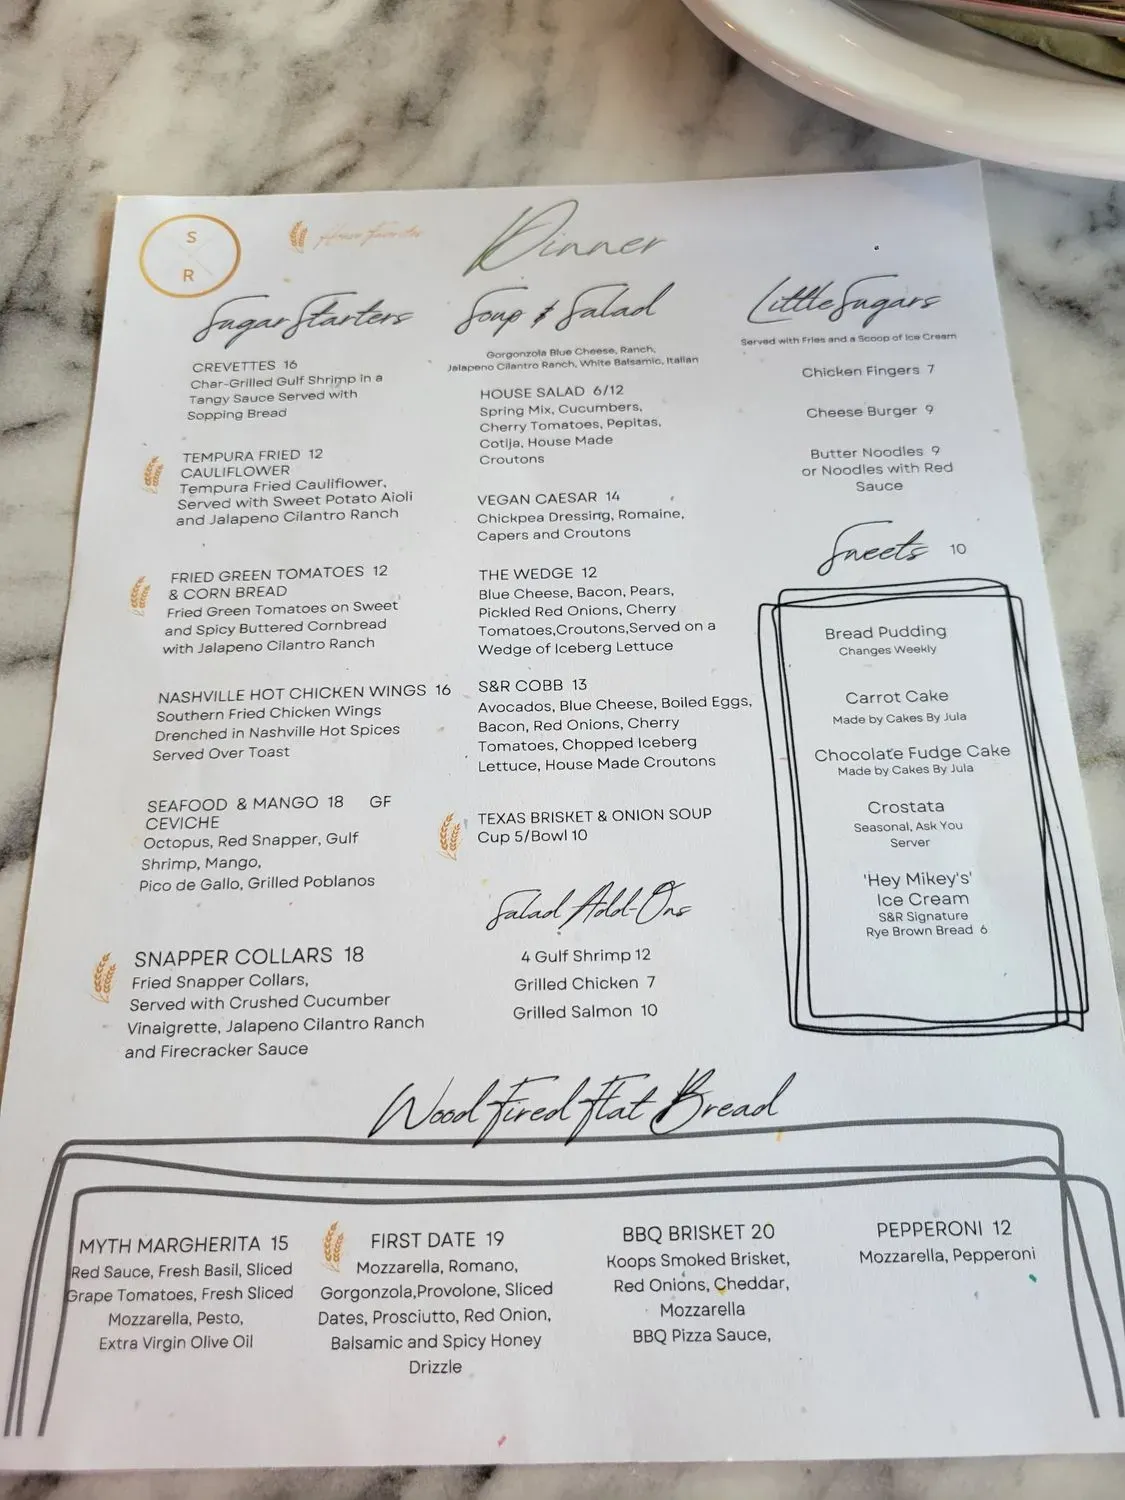 S
R
House Favorites
Dinner
Sugar Starters
CREVETTES 16
Char-Grilled Gulf Shrimp in a
Tangy Sauce Served with
Sopping Bread
TEMPURA FRIED 12
CAULIFLOWER
Tempura Fried Cauliflower,
Served with Sweet Potato Aioli
and Jalapeno Cilantro Ranch
FRIED GREEN TOMATOES 12
& CORN BREAD
Fried Green Tomatoes on Sweet
and Spicy Buttered Cornbread
with Jalapeno Cilantro Ranch
NASHVILLE HOT CHICKEN WINGS 16
Southern Fried Chicken Wings
Drenched in Nashville Hot Spices
Served Over Toast
SEAFOOD & MANGO 18 GF
CEVICHE
Octopus, Red Snapper, Gulf
Shrimp, Mango,
Pico de Gallo, Grilled Poblanos
SNAPPER COLLARS 18
Fried Snapper Collars,
Served with Crushed Cucumber
Vinaigrette, Jalapeno Cilantro Ranch
and Firecracker Sauce
Soup & Salad
Gorgonzola Blue Cheese, Ranch,
Jalapeno Cilantro Ranch, White Balsamic, Italian
HOUSE SALAD 6/12
Spring Mix, Cucumbers,
Cherry Tomatoes, Pepitas,
Cotija, House Made
Croutons
VEGAN CAESAR 14
Chickpea Dressing, Romaine,
Capers and Croutons
THE WEDGE 12
Blue Cheese, Bacon, Pears,
Pickled Red Onions, Cherry
Tomatoes,Croutons,Served on a
Wedge of Iceberg Lettuce
S&R COBB 13
Avocados, Blue Cheese, Boiled Eggs,
Bacon, Red Onions, Cherry
Tomatoes, Chopped Iceberg
Lettuce, House Made Croutons
TEXAS BRISKET & ONION SOUP
Cup 5/Bowl 10
Salad Add-Ons
4 Gulf Shrimp 12
Grilled Chicken 7
Grilled Salmon 10
Little Sugars
Served with Fries and a Scoop of Ice Cream
Chicken Fingers 7
Cheese Burger 9
Butter Noodles 9
or Noodles with Red
Sauce
Sweets 10
Bread Pudding
Changes Weekly
Carrot Cake
Made by Cakes By Jula
Chocolate Fudge Cake
Made by Cakes By Jula
Crostata
Seasonal, Ask You
Server
'Hey Mikey's'
Ice Cream
S&R Signature
Rye Brown Bread 6
Wood Fired Flat Bread
MYTH MARGHERITA 15
Red Sauce, Fresh Basil, Sliced
Grape Tomatoes, Fresh Sliced
Mozzarella, Pesto,
Extra Virgin Olive Oil
FIRST DATE 19
Mozzarella, Romano,
Gorgonzola,Provolone, Sliced
Dates, Prosciutto, Red Onion,
Balsamic and Spicy Honey
Drizzle
BBQ BRISKET 20
Koops Smoked Brisket,
Red Onions, Cheddar,
Mozzarella
BBQ Pizza Sauce,
PEPPERONI 12
Mozzarella, Pepperoni